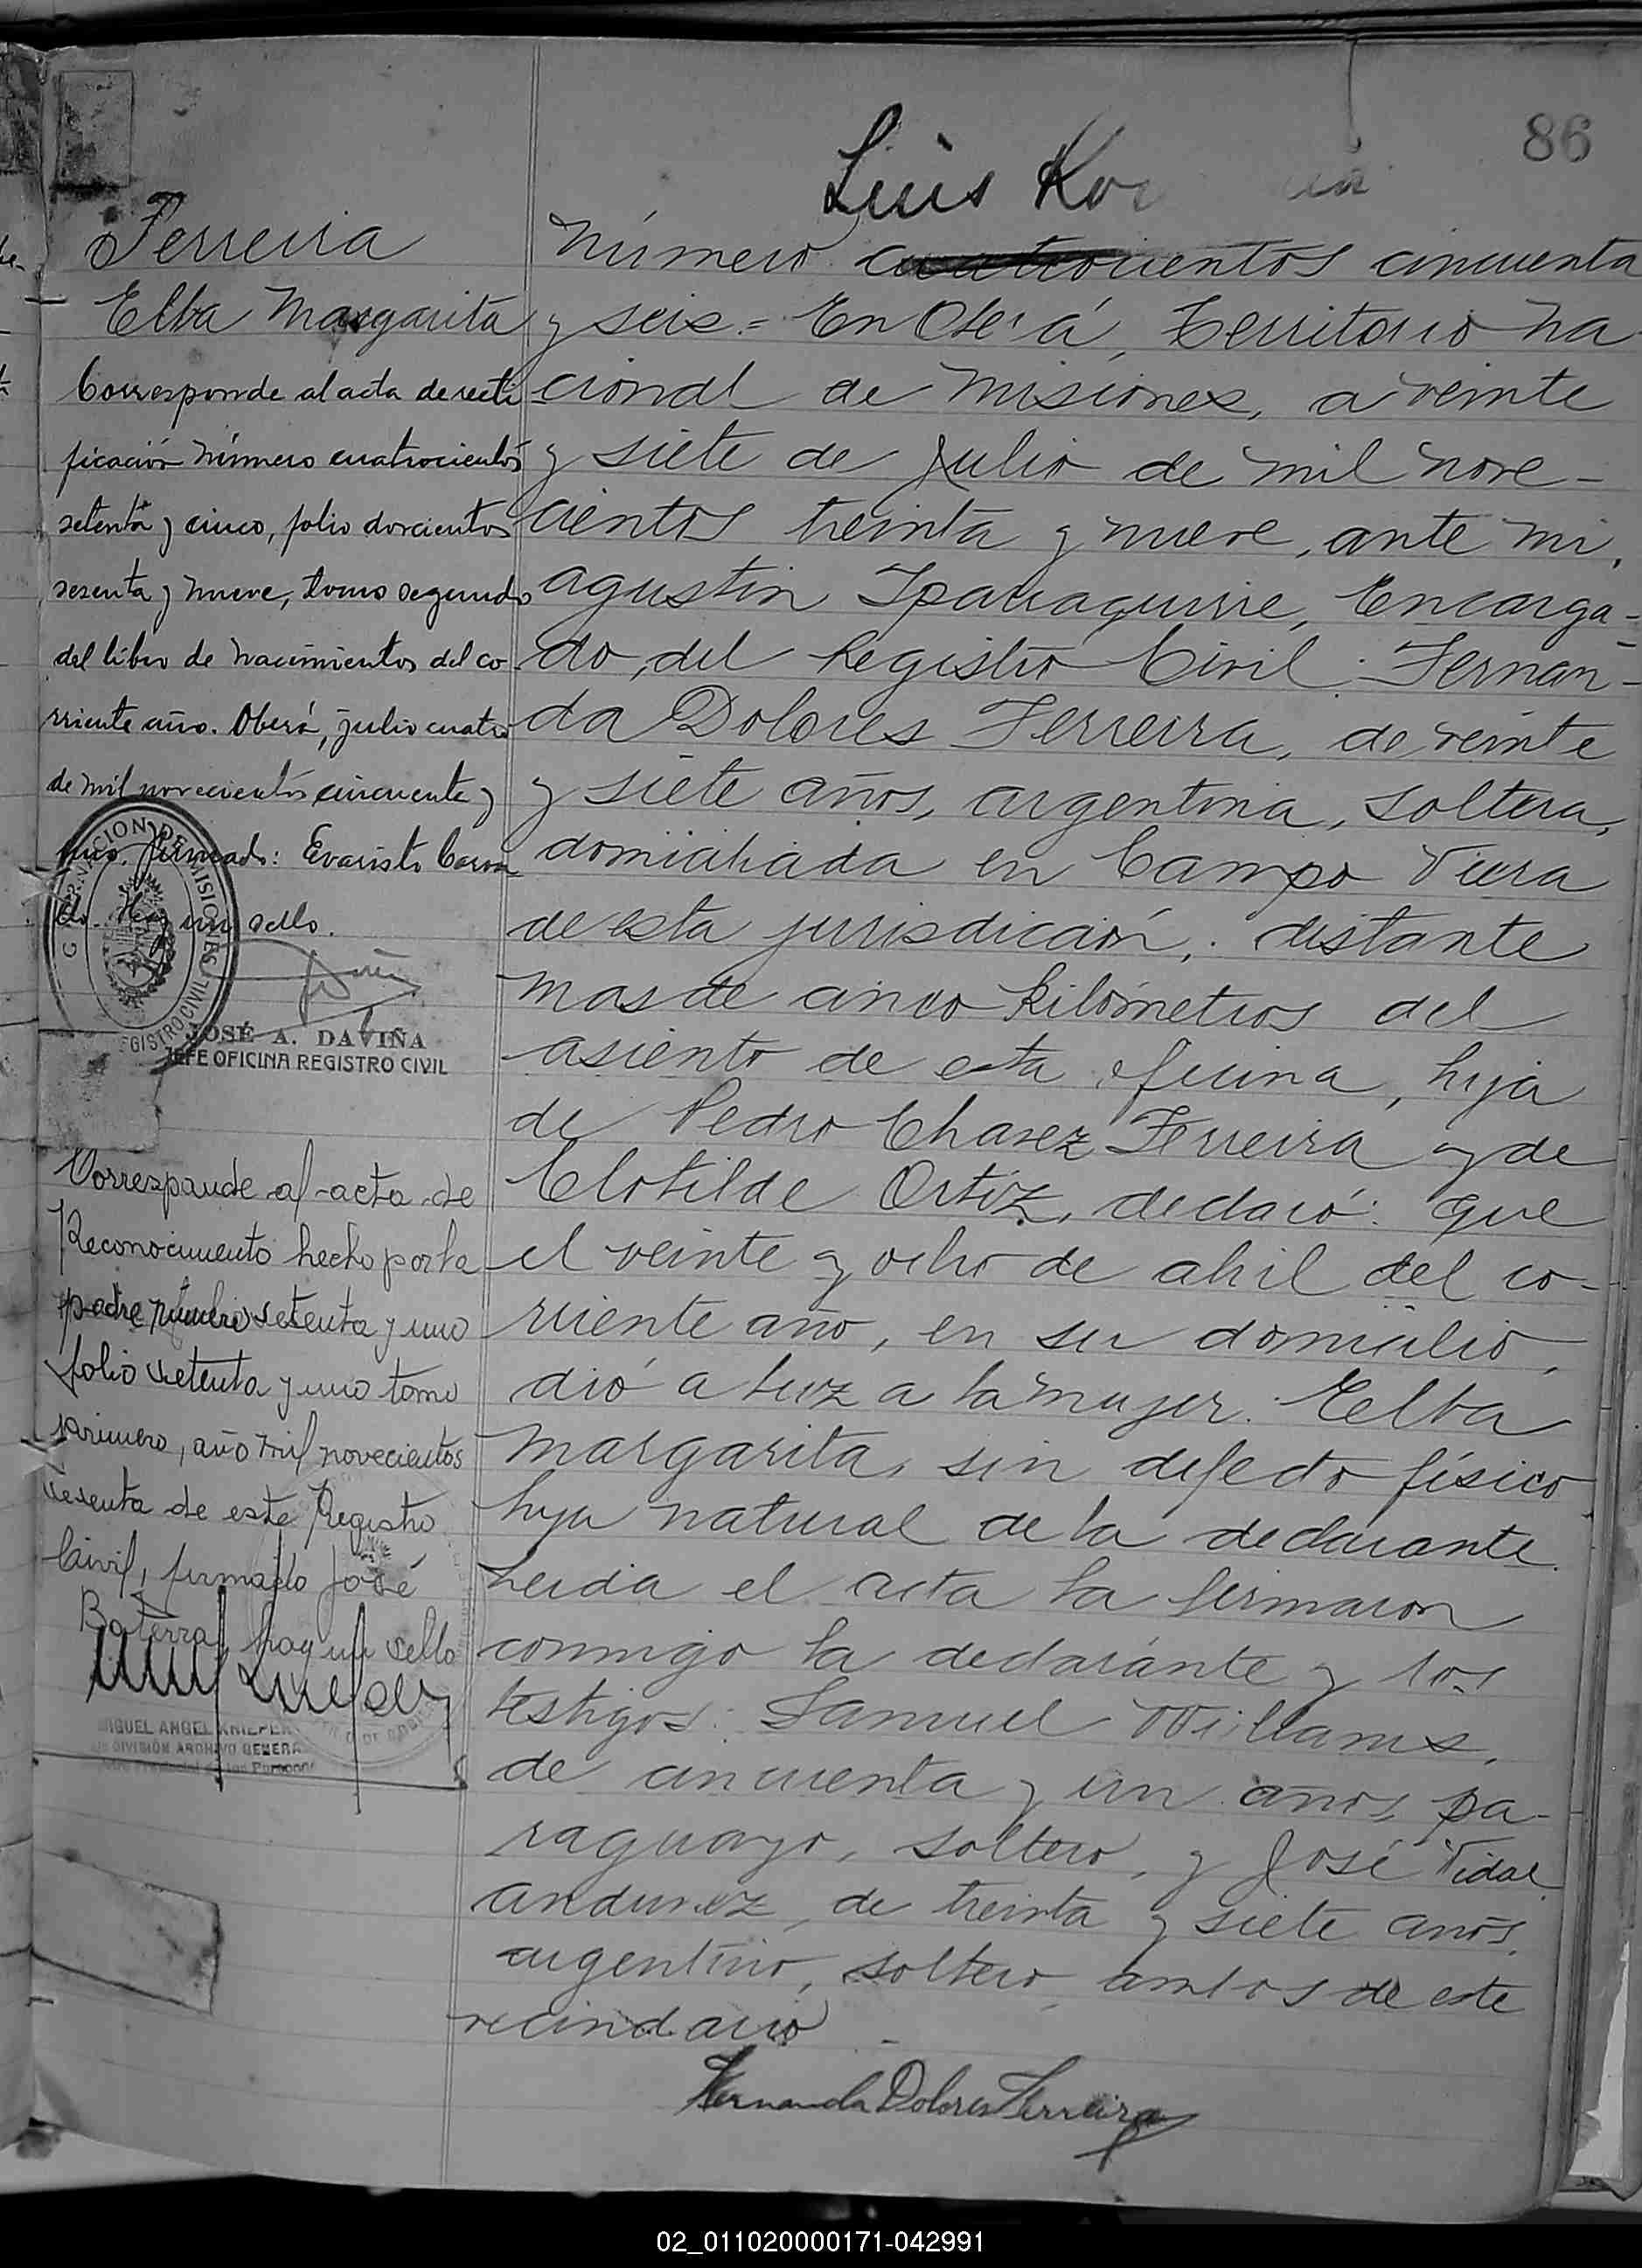 86
Luis
Ferreira
Elba Margarita
Corresponde al acta de recti-
ficación número cuatrocientos
setenta y cinco, folio doscientos
sesenta y nueve, tomo segundo
del libro de nacimientos del co-
rriente año. Oberá, julio cuatro
de mil novecientos cincuenta y
Firmado: Evaristo
Hay un sello.
REGISTRO CIVIL
JOSÉ A. DAVIÑA
JEFE OFICINA REGISTRO CIVIL
Corresponde al acta de
Reconocimiento hecho por la
padre número setenta y uno
folio setenta y uno tomo
primero, año mil novecientos
sesenta de este Registro
Civil, firmado José
Baterra, hay un sello
MIGUEL ANGEL KNIEPER
DIVISIÓN ARCHIVO GENERAL
Número cuatrocientos cincuenta
y seis.= En Oberá, Territorio Na
cional de Misiones, a veinte
y siete de Julio de mil nove-
cientos treinta y nueve, ante mi,
Agustin Iparraguirre, Encarga-
do, del Registro Civil: Fernan-
da Dolores Ferreira, de veinte
y siete años, argentina, soltera,
domiciliada en Campo Viera
de esta jurisdicción, distante
mas de cinco kilómetros del
asiento de esta oficina, hija
de Pedro Chavez Ferreira y de
Clotilde Ortiz, declaró: que
el veinte y ocho de abril del co-
rriente año, en su domicilio,
dió a luz a la mujer. Elba
Margarita, sin defecto físico
hija natural de la declarante.
Leida el acta la firmaron
conmigo la declarante y los
testigos: Samuel Williams,
de cincuenta y un años, pa-
raguayo, soltero, y José Vidal
Andunez, de treinta y siete años,
argentino, soltero, ambos de este
vecindario
Fernanda Dolores Ferreira
02_011020000171-042991